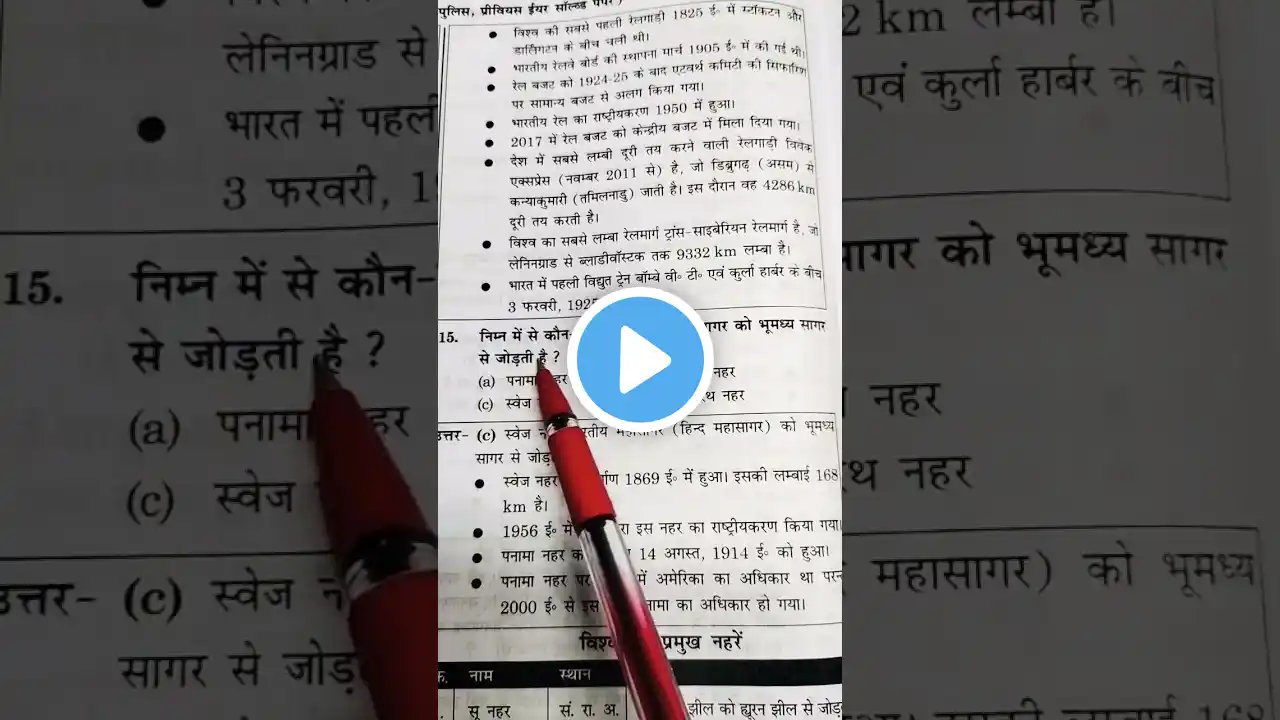 पुलिस, प्रीवियस ईयर सॉल्व्ड पेपर)
• विश्व की सबसे पहली रेलगाड़ी 1825 ई॰ में स्टॉकटन और
डार्लिंगटन के बीच चली थी।
• भारतीय रेलवे बोर्ड की स्थापना मार्च 1905 ई॰ में की गई थी।
• रेल बजट को 1924-25 के बाद एटवर्थ कमिटी की सिफारिश
पर सामान्य बजट से अलग किया गया।
• भारतीय रेल का राष्ट्रीयकरण 1950 में हुआ।
• 2017 में रेल बजट को केन्द्रीय बजट में मिला दिया गया।
• देश में सबसे लम्बी दूरी तय करने वाली रेलगाड़ी विवेक
एक्सप्रेस (नवम्बर 2011 से) है, जो डिब्रुगढ़ (असम) से
कन्याकुमारी (तमिलनाडु) जाती है। इस दौरान वह 4286 km
दूरी तय करती है।
• विश्व का सबसे लम्बा रेलमार्ग ट्रांस-साइबेरियन रेलमार्ग है, जो
लेनिनग्राड से ब्लाडीवॉस्टक तक 9332 km लम्बा है।
• भारत में पहली विद्युत ट्रेन बॉम्बे वी॰ टी॰ एवं कुर्ला हार्बर के बीच
3 फरवरी, 1925
15. निम्न में से कौन- गर को भूमध्य सागर
से जोड़ती है ?
(a) पनामा हर नहर
(c) स्वेज थ नहर
उत्तर- (c) स्वेज न रतीय महासागर (हिन्द महासागर) को भूमध्य
सागर से जोड़
• स्वेज नहर र्माण 1869 ई॰ में हुआ। इसकी लम्बाई 168
km है।
• 1956 ई॰ में रा इस नहर का राष्ट्रीयकरण किया गया।
• पनामा नहर क 14 अगस्त, 1914 ई॰ को हुआ।
• पनामा नहर पर में अमेरिका का अधिकार था परन
2000 ई॰ से इस नामा का अधिकार हो गया।
विश्व प्रमुख नहरें
क्र. नाम स्थान
सू नहर सं. रा. अ. झील को ह्यूरन झील से जोड़
लेनिनग्राड से
• भारत में पहली
3 फरवरी, 1
15. निम्न में से कौन-
से जोड़ती है ?
(a) पनामा हर
(c) स्वेज
उत्तर- (c) स्वेज न
सागर से जोड़
2 km लम्बा है।
एवं कुर्ला हार्बर के बीच
ागर को भूमध्य सागर
नहर
थ नहर
महासागर) को भूमध्य